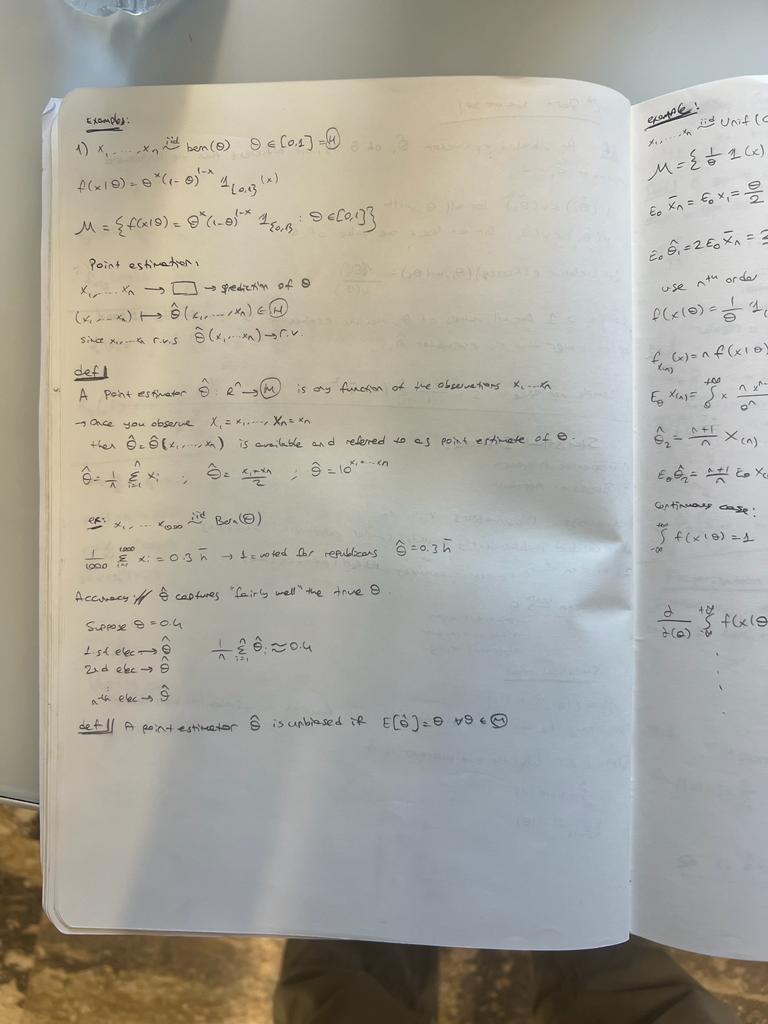 Examples:
1) x₁, ..., xₙ iid~ bern(θ) θ ∈ [0,1] = Ⓗ
f(x|θ) = θˣ(1-θ)¹⁻ˣ 𝟙{0,1}(x)
M = {f(x|θ) = θˣ(1-θ)¹⁻ˣ 𝟙{0,1} : θ ∈ [0,1]}
Point estimation:
x₁, ... xₙ → □ → prediction of θ
(x₁, ... xₙ) ↦ θ̂(x₁, ..., xₙ) ∈ Ⓗ
since x₁, ... xₙ r.v.s θ̂(x₁, ... xₙ) → r.v.
def|
A point estimator θ̂: Rⁿ → Ⓗ is any function of the observations x₁, ... xₙ
→ Once you observe X₁ = x₁, ..., Xₙ = xₙ
then θ̂ = θ̂(x₁, ..., xₙ) is available and referred to as point estimate of θ.
θ̂ = 1/n Σⁿᵢ₌₁ xᵢ ; θ̂ = (x₁+xₙ)/2 ; θ̂ = 10^(x₁+...xₙ)
ex: x₁, ... x₁₀₀₀ iid~ Bern(θ)
1/1000 Σ¹⁰⁰⁰ᵢ₌₁ xᵢ = 0.3 → 1 = voted for republicans θ̂ = 0.3
Accuracy: // θ̂ captures "fairly well" the true θ
Suppose θ = 0.4
1.st elec → θ̂ 1/n Σⁿᵢ₌₁ θ̂ᵢ ≈ 0.4
2nd elec → θ̂
nth elec → θ̂
def|| A point estimator θ̂ is unbiased if E[θ̂] = θ ∀θ ∈ Ⓗ
example:
x₁, ... xₙ iid~ Unif(
M = {1/θ 𝟙(x)
E₀ x̄ₙ = E₀ x₁ = θ/2
E₀ θ̂₁ = 2E₀ x̄ₙ =
use nth order
f(x|θ) = 1/θ 𝟙
f_x(n)(x) = n f(x|θ)
E_θ X(n) = ∫ x
θ̂₂ = (n+1)/n X(n)
E₀ θ̂₂ = (n+1)/n E₀ X(
continuous case:
∫ f(x|θ) = 1
∂/∂(θ) ∫ f(x|θ